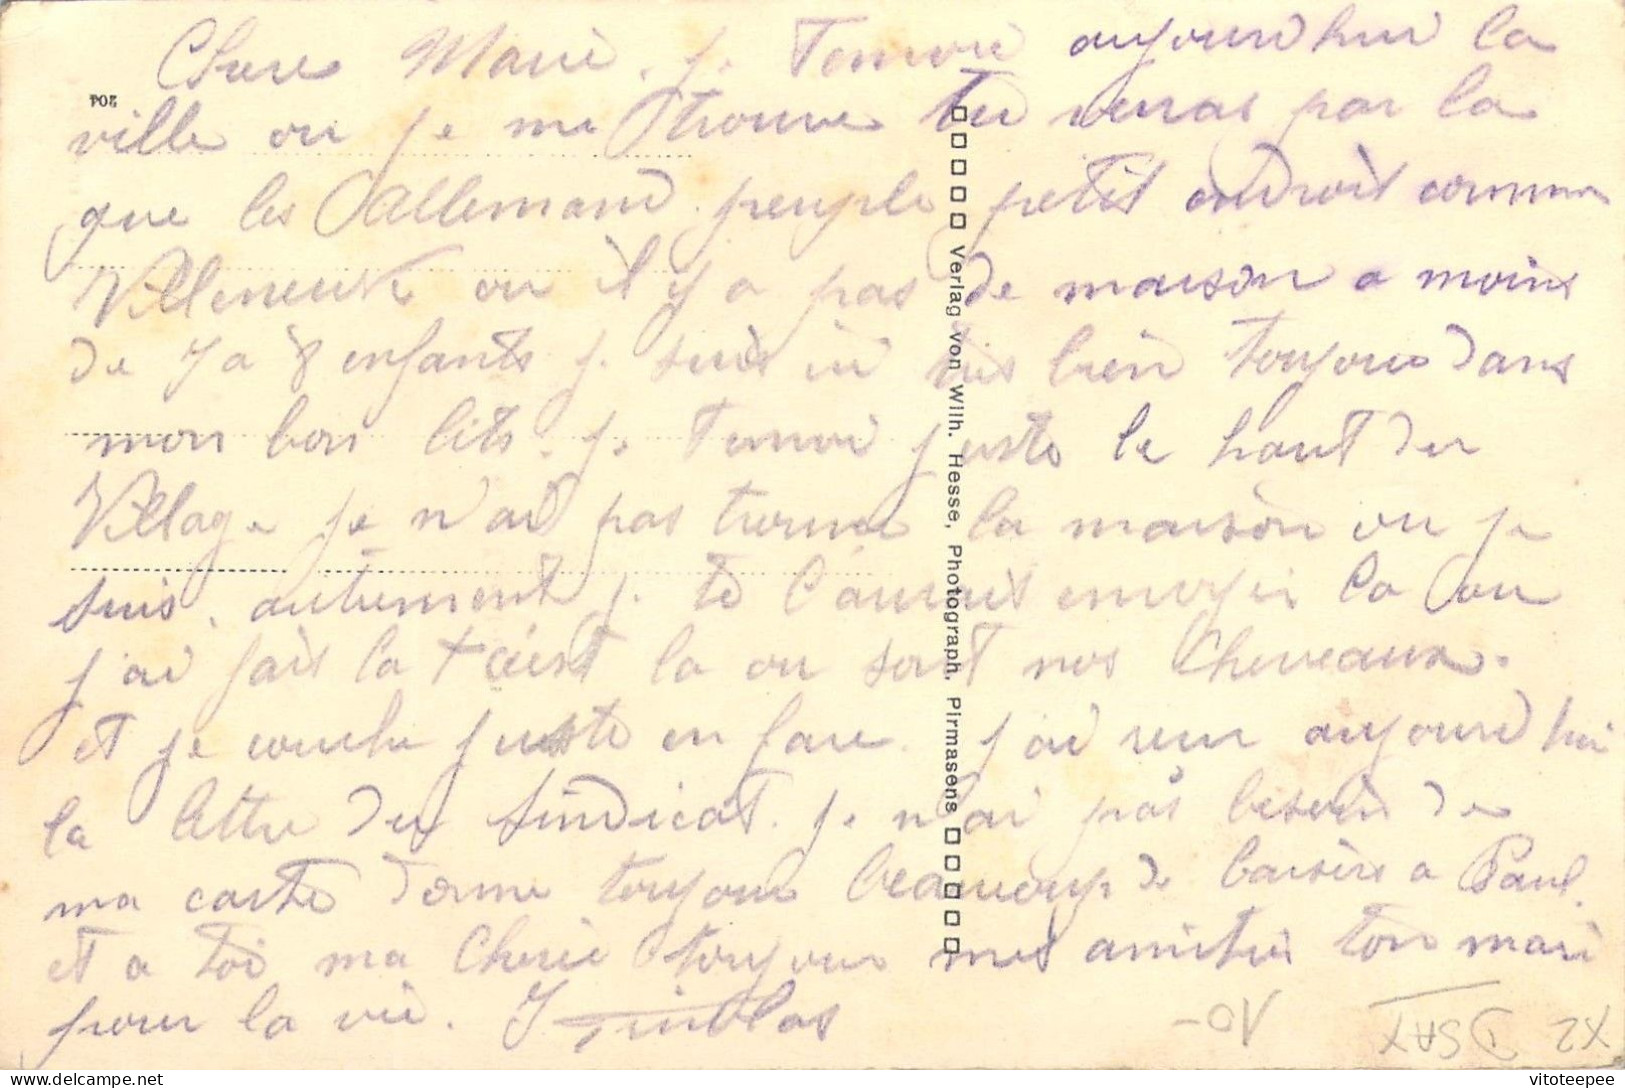 Chere Marie. je T'envoie aujourd'hui la
ville ou je me trouve Tu verras par la
que les Allemand peuple petit endroit comme
Villeneuve ou il y a pas de maison a moins
de 7 a 8 enfants je suis ici très bien toujours dans
mon bon lits. je T'envoi juste le haut du
Village je n'ai pas trouve la maison ou je
suis. autrement je te l'aurais envoyer La ou
j'ai fais la + c'est la ou sont nos Cheveaux.
et je couche juste en face. j'ai reçu aujourd'hui
la lettre du Sindicat. je n'ai pas besoin de
ma carte donne toujours beaucoup de baisers a Paul.
et a toi ma Cherie toujours mes amitiés ton mari
pour la vie. J
204
Verlag von Wilh. Hesse, Photograph, Pirmasens
10-
DSAX
X2
vitoteepee